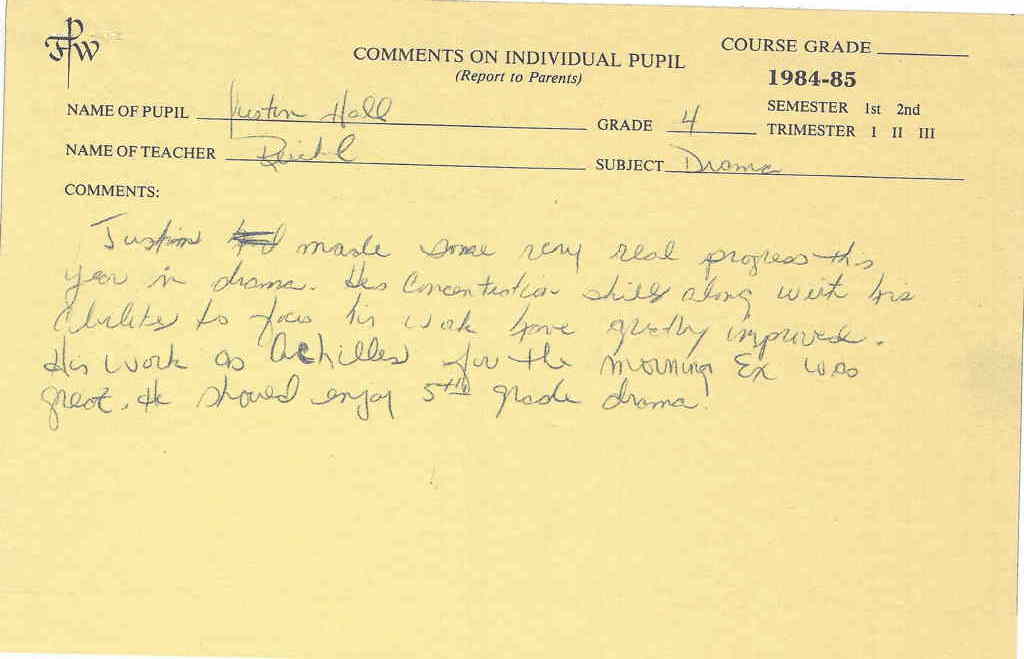 FPW
COURSE GRADE
COMMENTS ON INDIVIDUAL PUPIL
(Report to Parents)
1984-85
NAME OF PUPIL Justin Hall
GRADE 4
SEMESTER 1st 2nd
TRIMESTER I II III
NAME OF TEACHER
SUBJECT Drama
COMMENTS:
Justin made some very real progress this
year in drama. His Concentration skills along with his
abilities to focus his work have greatly improved.
His work as Achilles for the Morning Ex was
great. He should enjoy 5th grade drama!